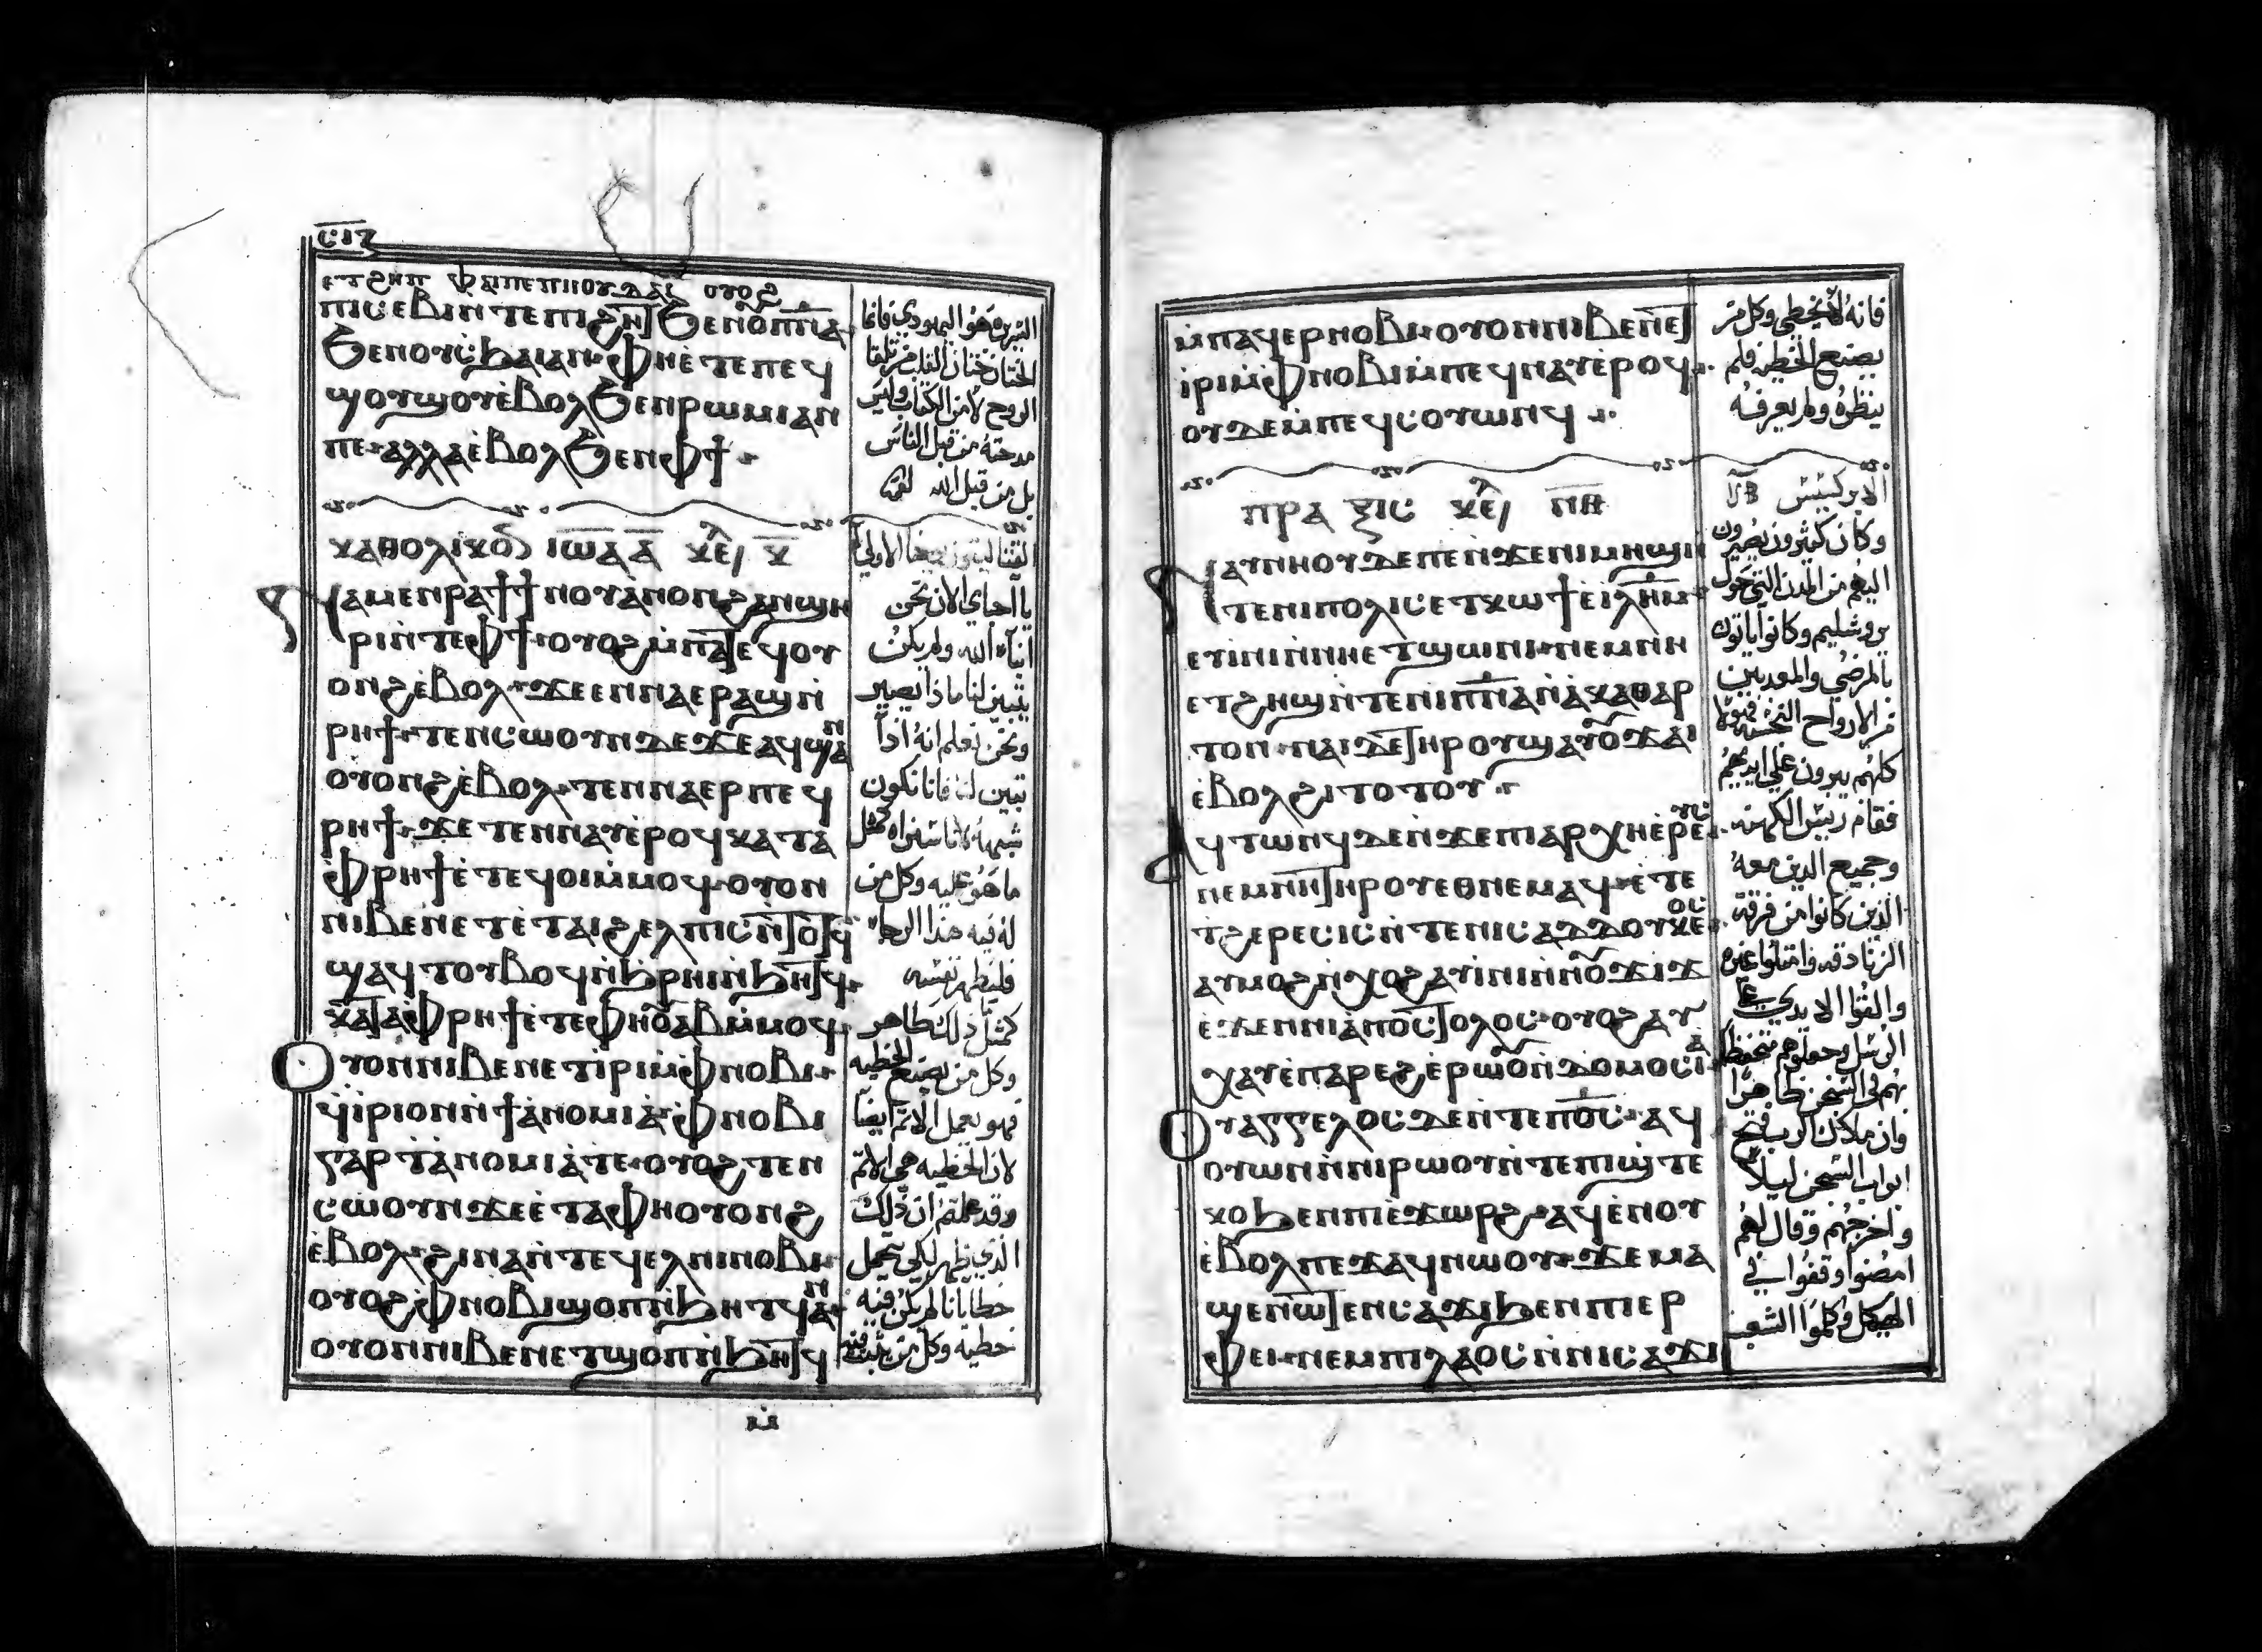 ⲉⲧϩⲏⲡ ⲫⲁⲓⲡⲉ ⲡⲓⲓⲟⲩⲇⲁⲓ ⲟⲩⲟϩ
ⲡⲓⲥⲉⲃⲓ ⲛⲧⲉ ⲡⲓϩⲏⲧ ϧⲉⲛ ⲟⲩⲡ̅ⲛ̅ⲁ̅
ϧⲉⲛ ⲟⲩⲥϧⲁⲓ ⲁⲛ ⲫⲏ ⲉⲧⲉ ⲡⲉϥ
ϣⲟⲩϣⲟⲩ ⲉⲃⲟⲗ ϧⲉⲛ ⲣⲱⲙⲓ ⲁⲛ
ⲡⲉ ⲁⲗⲗⲁ ⲉⲃⲟⲗ ϧⲉⲛ ⲫϯ
ⲁⲙⲉⲛⲣⲁϯ ϯⲛⲟⲩ ⲁⲛⲟⲛ ϩⲁⲛϣⲏ
ⲣⲓ ⲛⲧⲉ ⲫϯ ⲟⲩⲟϩ ⲙⲡⲁⲧⲉϥⲟⲩ
ⲟⲛϩ ⲉⲃⲟⲗ ϫⲉ ⲉⲛⲛⲁⲉⲣ ⲁϣ ⲛ̀
ⲣⲏϯ ⲧⲉⲛⲥⲱⲟⲩⲛ ⲇⲉ ϫⲉ ⲁϥϣⲁⲛ
ⲟⲩⲟⲛϩ ⲉⲃⲟⲗ ⲧⲉⲛⲛⲁⲉⲣ ⲡⲉϥ
ⲣⲏϯ ϫⲉ ⲧⲉⲛⲛⲁⲩ ⲉⲣⲟϥ ⲕⲁⲧⲁ
ⲫⲣⲏϯ ⲉⲧⲉϥⲟⲓ ⲙⲙⲟϥ ⲟⲩⲟⲛ
ⲛⲓⲃⲉⲛ ⲉⲧⲉ ⲧⲁⲓϩⲉⲗⲡⲓⲥ ⲛⲧⲟⲧϥ
ϣⲁϥⲧⲟⲩⲃⲟϥ ⲛϧⲣⲏⲓ ⲛϧⲏⲧϥ
ⲕⲁⲧⲁ ⲫⲣⲏϯ ⲉⲧⲉ ⲫⲏ ⲟⲩⲁⲃ ⲙⲙⲟϥ
ⲟⲩⲟⲛ ⲛⲓⲃⲉⲛ ⲉⲧⲓⲣⲓ ⲙⲫⲛⲟⲃⲓ
ϥⲓⲣⲓ ⲟⲛ ⲛϯⲁⲛⲟⲙⲓⲁ ⲫⲛⲟⲃⲓ
ⲅⲁⲣ ⲧⲁⲛⲟⲙⲓⲁ ⲧⲉ ⲟⲩⲟϩ ⲧⲉⲛ
ⲥⲱⲟⲩⲛ ϫⲉ ⲉⲧⲁ ⲫⲏ ⲟⲩⲟⲛϩ
ⲉⲃⲟⲗ ϩⲓⲛⲁ ⲛⲧⲉϥⲉⲗ ⲛⲓⲛⲟⲃⲓ
ⲟⲩⲟϩ ⲫⲛⲟⲃⲓ ϣⲟⲡ ⲛϧⲏⲧϥ ⲁⲛ
ⲟⲩⲟⲛ ⲛⲓⲃⲉⲛ ⲉⲧϣⲟⲡ ⲛϧⲏⲧϥ
الختان ختان القلب من تلقا
الروح لا من الكتاب وليس
مدحته من قبل الناس
بل من قبل الله
يا احباي الان نحن
ابناء الله ولم يكن
يتبين لنا ماذا نصير
ونحن نعلم انه اذا
تبين لنا فاننا نكون
ما هو عليه وكل من
فليطهر نفسه
وكل من يصنع الخطيه
فهو يعمل الاثم ايضا
لان الخطيه هي الاثم
وقد علمتم ان ذلك
الذي ظهر لكي يحمل
خطايانا لم يكن فيه
خطية وكل من يثبت فيه
ⲙⲡⲁϥⲉⲣⲛⲟⲃⲓ ⲟⲩⲟⲛ ⲛⲓⲃⲉⲛ ⲉⲧ
ⲓⲣⲓ ⲙⲫⲛⲟⲃⲓ ⲙⲡⲉϥⲛⲁⲩ ⲉⲣⲟϥ
ⲟⲩⲇⲉ ⲙⲡⲉϥⲥⲟⲩⲱⲛϥ
ⲡⲣⲁⲝⲓⲥ ⲕⲉ ⲡⲏ
ⲛⲁⲩⲛⲏⲟⲩ ⲇⲉ ⲡⲉ ⲛϫⲉ ⲛⲓⲙⲏϣ ⲛ
ⲧⲉ ⲛⲓⲡⲟⲗⲓⲥ ⲉⲧⲕⲱϯ ⲉⲓⲗⲏⲙ
ⲉⲩⲓⲛⲓ ⲛⲛⲏ ⲉⲧϣⲱⲛⲓ ⲛⲉⲙ ⲛⲏ
ⲉⲧϩⲏϣ ⲛⲧⲉ ⲛⲓⲡ̅ⲛ̅ⲁ̅ ⲛⲁⲕⲁⲑⲁⲣ
ⲧⲟⲛ ⲛⲁⲓ ⲇⲉ ⲧⲏⲣⲟⲩ ϣⲁⲩⲟⲩϫⲁⲓ
ⲉⲃⲟⲗ ϩⲓⲧⲟⲧⲟⲩ
ⲁϥⲧⲱⲛϥ ⲇⲉ ⲛϫⲉ ⲡⲓⲁⲣⲭⲏⲉⲣⲉⲩⲥ
ⲛⲉⲙ ⲛⲏ ⲧⲏⲣⲟⲩ ⲉⲑⲛⲉⲙⲁϥ ⲉⲧⲉ
ⲧϩⲉⲣⲉⲥⲓⲥ ⲛⲧⲉ ⲛⲓⲥⲁⲇⲇⲟⲩⲕⲉⲟⲥ
ⲁⲩⲙⲟϩ ⲛⲭⲟϩ ⲁⲩⲓⲛⲓ ⲛⲛⲟⲩϫⲓϫ
ⲉϫⲉⲛ ⲛⲓⲁⲡⲟⲥⲧⲟⲗⲟⲥ ⲟⲩⲟϩ ⲁⲩ
ⲭⲁⲩ ⲉⲡⲁⲣⲉϩ ⲉⲣⲱⲟⲩ ⲛⲇⲟⲙⲟⲥⲓⲁ
ⲟⲩⲁⲅⲅⲉⲗⲟⲥ ⲇⲉ ⲛⲧⲉ ⲡⲟⲥ ⲁϥ
ⲟⲩⲱⲛ ⲛⲛⲓⲣⲱⲟⲩ ⲛⲧⲉ ⲡⲓϣⲧⲉ
ⲕⲟ ϧⲉⲛ ⲡⲓⲉϫⲱⲣϩ ⲁϥⲉⲛⲟⲩ
ⲉⲃⲟⲗ ⲡⲉϫⲁϥ ⲛⲱⲟⲩ ϫⲉ ⲙⲁ
ϣⲉⲛⲱⲧⲉⲛ ⲥⲁϫⲓ ϧⲉⲛ ⲡⲓⲉⲣ
ⲫⲉⲓ ⲛⲉⲙ ⲡⲓⲗⲁⲟⲥ ⲛⲛⲓⲥⲁϫⲓ
فانه لا يخطي وكل من
يصنع الخطية فلم
ينظره ولم يعرفه
الابركسيس
وكان كثيرون يصيرون
اليهم من المدن التي حول
يروشليم وكانوا ياتون
بالمرضى والمعذبين
من الارواح النجسة فهولا
كلهم يبرون على ايديهم
فقام رييس الكهنه
وجميع الذين معه
الذين كانوا من فرقة
الزنادقه وامتلوا غيره
والقوا الايدي على
وان ملاك الرب فتح
ابواب السجن ليلا
واخرجهم وقال لهم
امضوا وقفوا في
الهيكل وكلموا الشعب